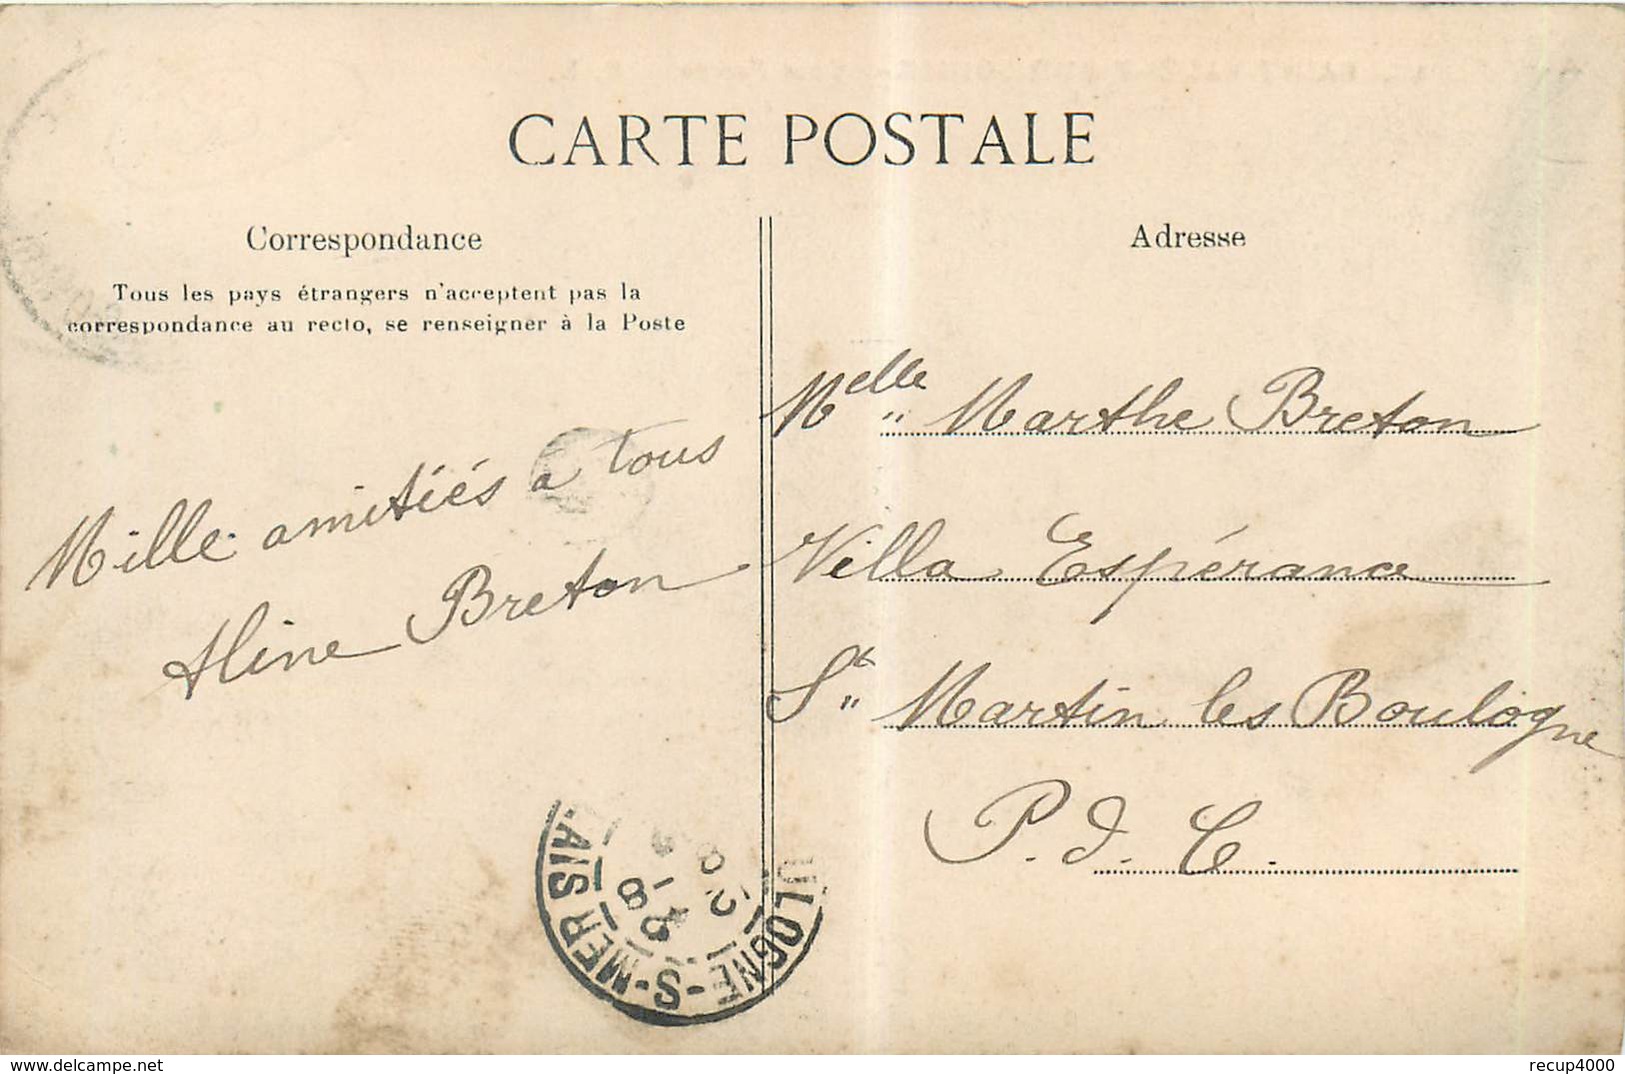 CARTE POSTALE
Correspondance
Tous les pays étrangers n'acceptent pas la
correspondance au recto, se renseigner à la Poste
Mille amitiés à tous
Aline Breton
Adresse
Melle Marthe Breton
Villa Espérance
St Martin les Boulogne
P. d. C.
ULOGNE-S-MER
LAIS
delcampe.net
recup4000